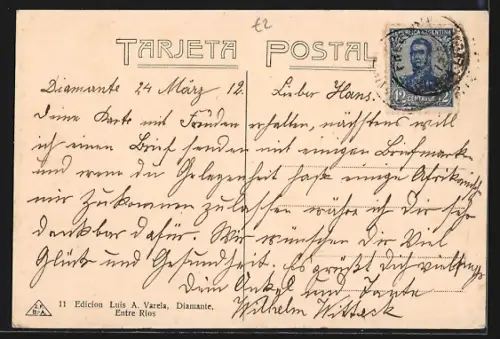 £2
TARJETA POSTAL
REPUBLICA ARGENTINA
12 CENTAVOS 12
Diamante 24 März 12. Lieber Hans.
Deine Karte mit Freuden erhalten, nächstens will
ich einen Brief senden mit einigen Briefmarken
und wenn du Gelegenheit hast einige Afrikanische
mir zukommen zu lassen währe ich Dir sehr
dankbar dafür. Wir wünschen dir Viel
Glück und Gesundheit. Es grüßt Dich vielmals
Dein Onkel und Tante
Wilhelm Witteck
11 Edicion Luis A. Varela, Diamante,
Entre Rios